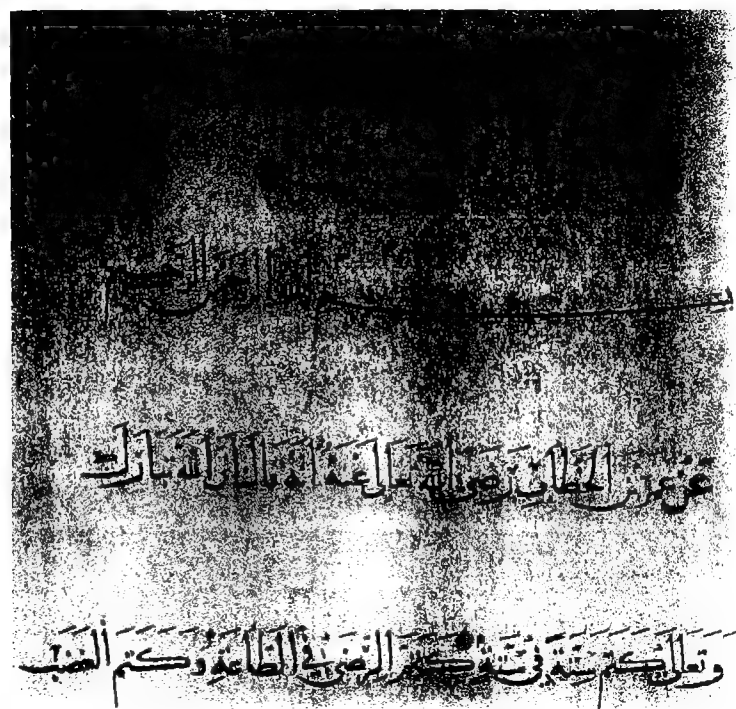 بسم الله الرحمن الرحيم
عَنْ عمر بن الخطاب رَضِيَ اللَّهُ تَعَالَى عَنْهُ أَنَّهُ قَالَ إِنَّ اللَّهَ تَبَارَكَ
وَتَعَالَى كَتَمَ سِتَّةً فِي سِتَّةٍ كَتَمَ الرِّضَى فِي الطَّاعَةِ وَكَتَمَ الْغَضَبَ